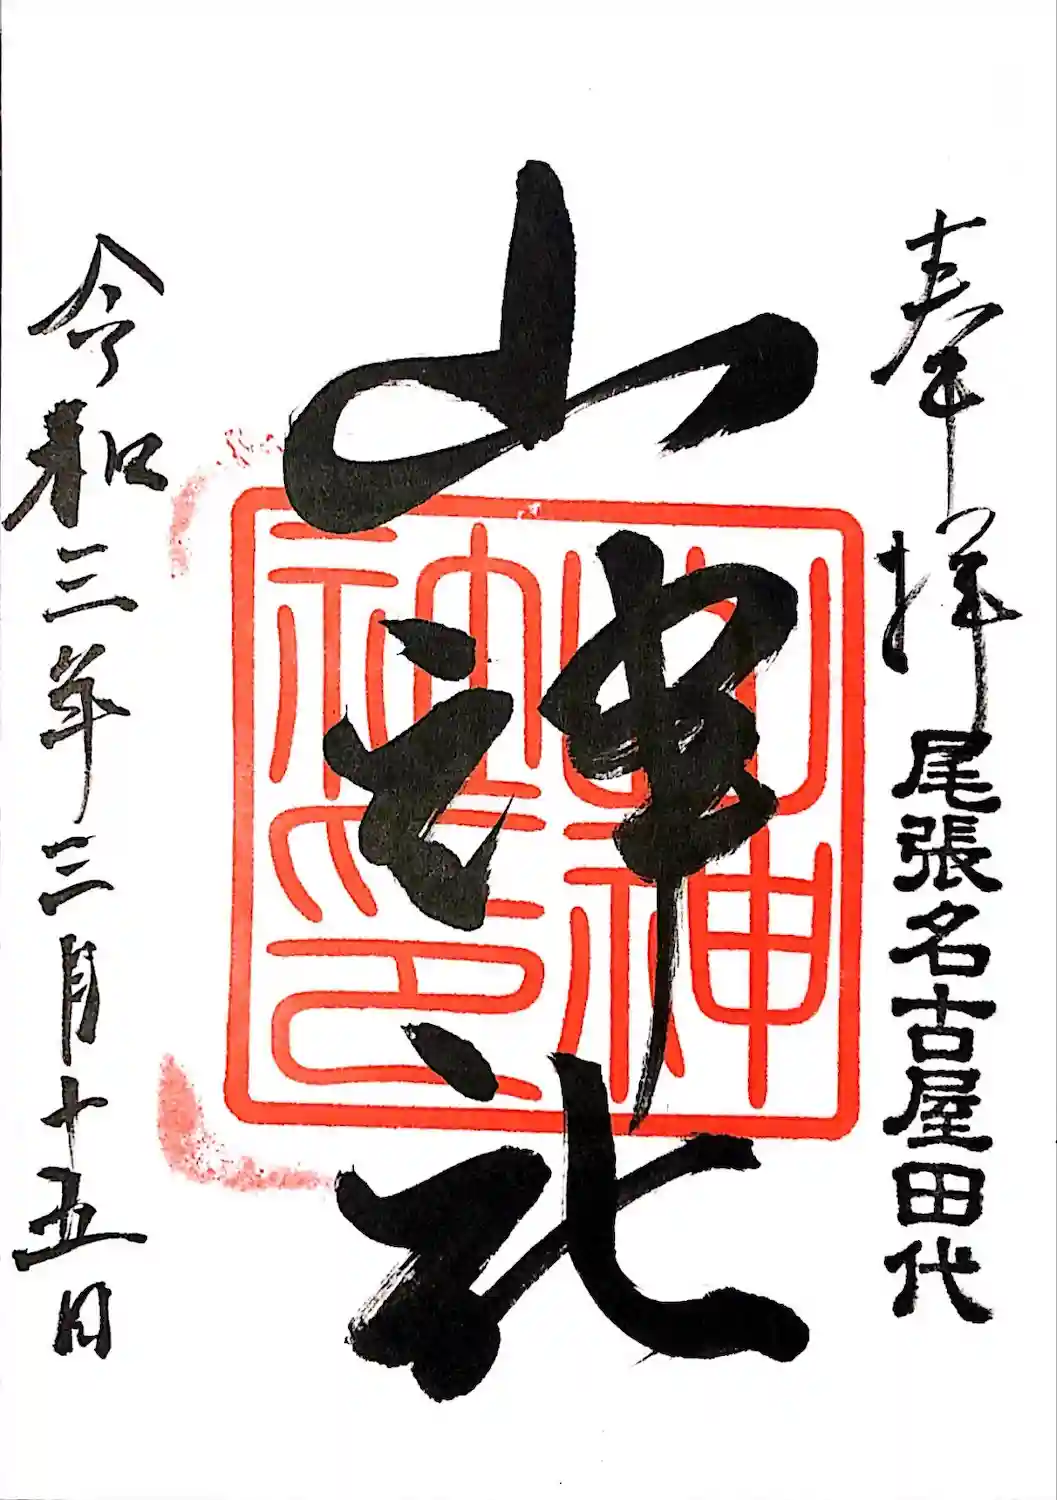 奉拝
尾張名古屋田代
山神社
山神社印
令和三年三月十五日